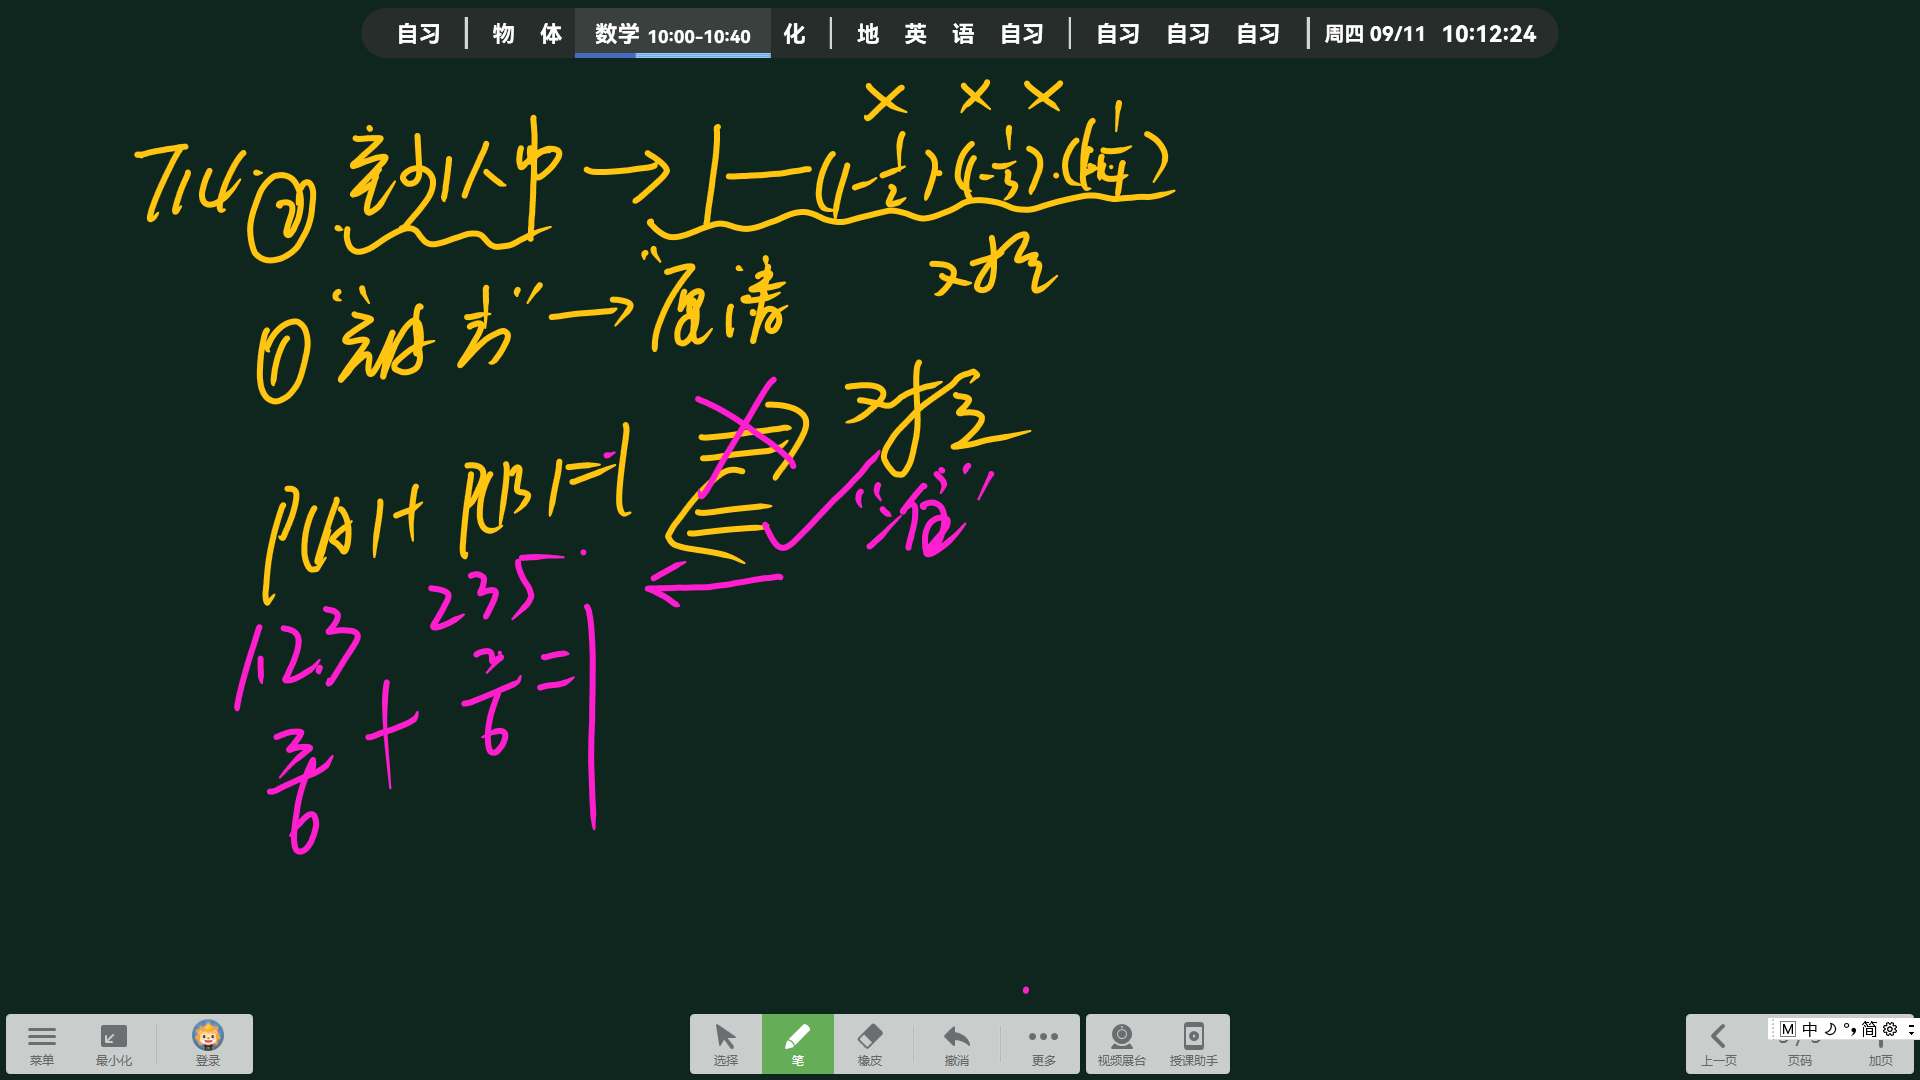 自习 | 物 体 数学 10:00-10:40 化 | 地 英 语 自习 | 自习 自习 自习 | 周四 09/11 10:12:24
× × ×
T14. ② 至少1人中 → 1—(1-1/2)·(1-1/3)·(1-1/4)
对立
① → "厘清
P(A)+P(B)=1 对立
1,2,3 235
3/6 + 3/6 = 1
菜单 最小化 登录 选择 笔 橡皮 撤消 更多 视频展台 授课助手 上一页 页码 加页
M 中 简